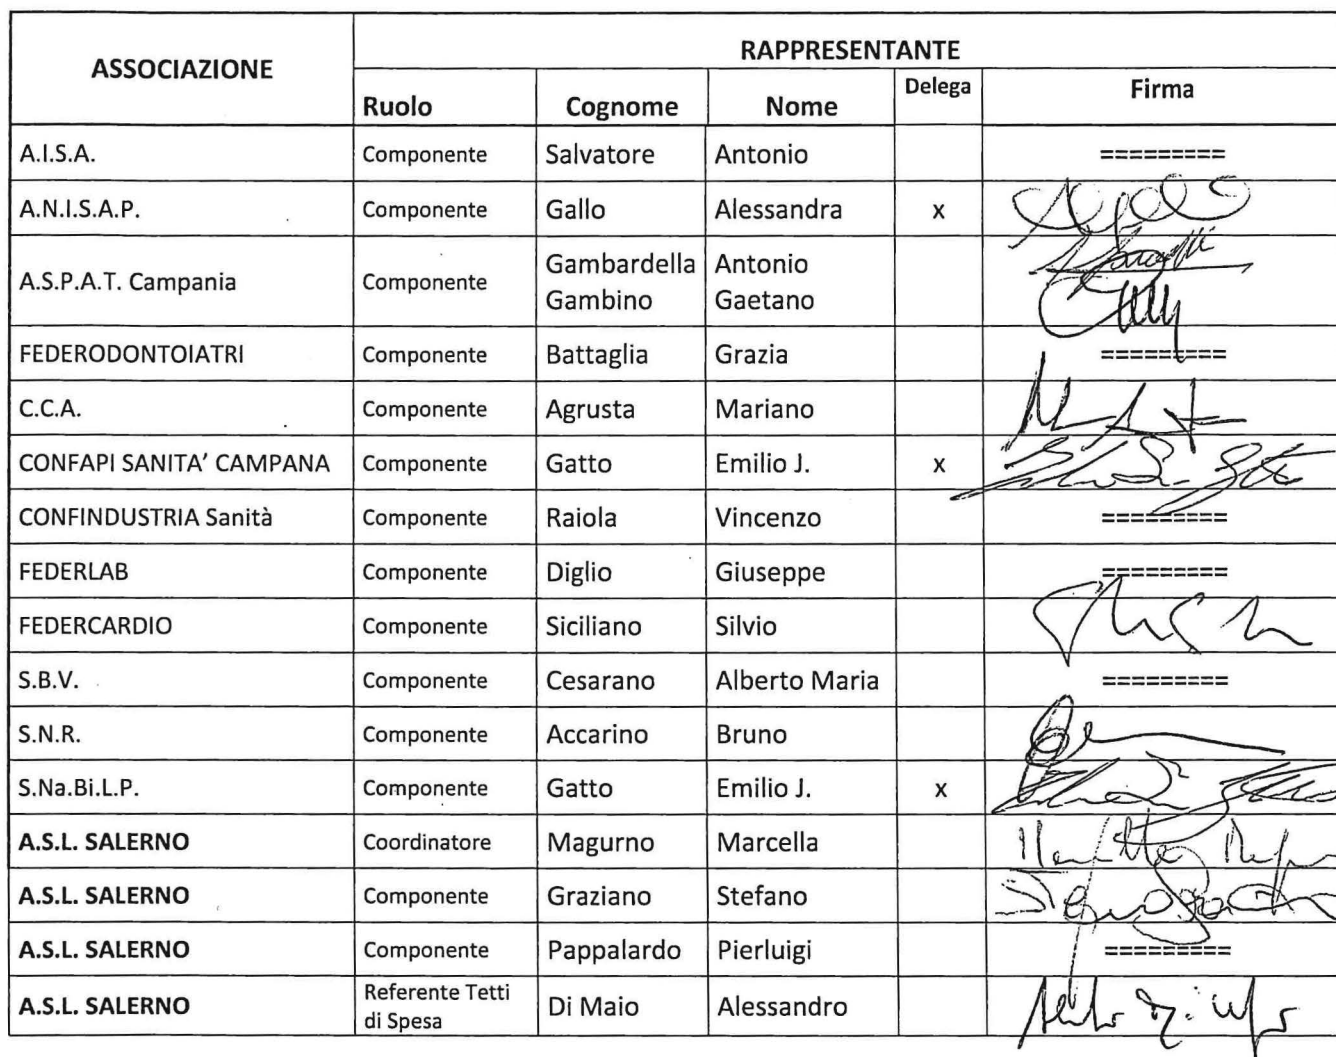 ASSOCIAZIONE RAPPRESENTANTE
Ruolo Cognome Nome Delega Firma
A.I.S.A. Componente Salvatore Antonio =========
A.N.I.S.A.P. Componente Gallo Alessandra x
A.S.P.A.T. Campania Componente Gambardella Antonio
Gambino Gaetano
FEDERODONTOIATRI Componente Battaglia Grazia =========
C.C.A. Componente Agrusta Mariano
CONFAPI SANITA' CAMPANA Componente Gatto Emilio J. x
CONFINDUSTRIA Sanità Componente Raiola Vincenzo =========
FEDERLAB Componente Diglio Giuseppe =========
FEDERCARDIO Componente Siciliano Silvio
S.B.V. Componente Cesarano Alberto Maria =========
S.N.R. Componente Accarino Bruno
S.Na.Bi.L.P. Componente Gatto Emilio J. x
A.S.L. SALERNO Coordinatore Magurno Marcella
A.S.L. SALERNO Componente Graziano Stefano
A.S.L. SALERNO Componente Pappalardo Pierluigi =========
A.S.L. SALERNO Referente Tetti di Spesa Di Maio Alessandro